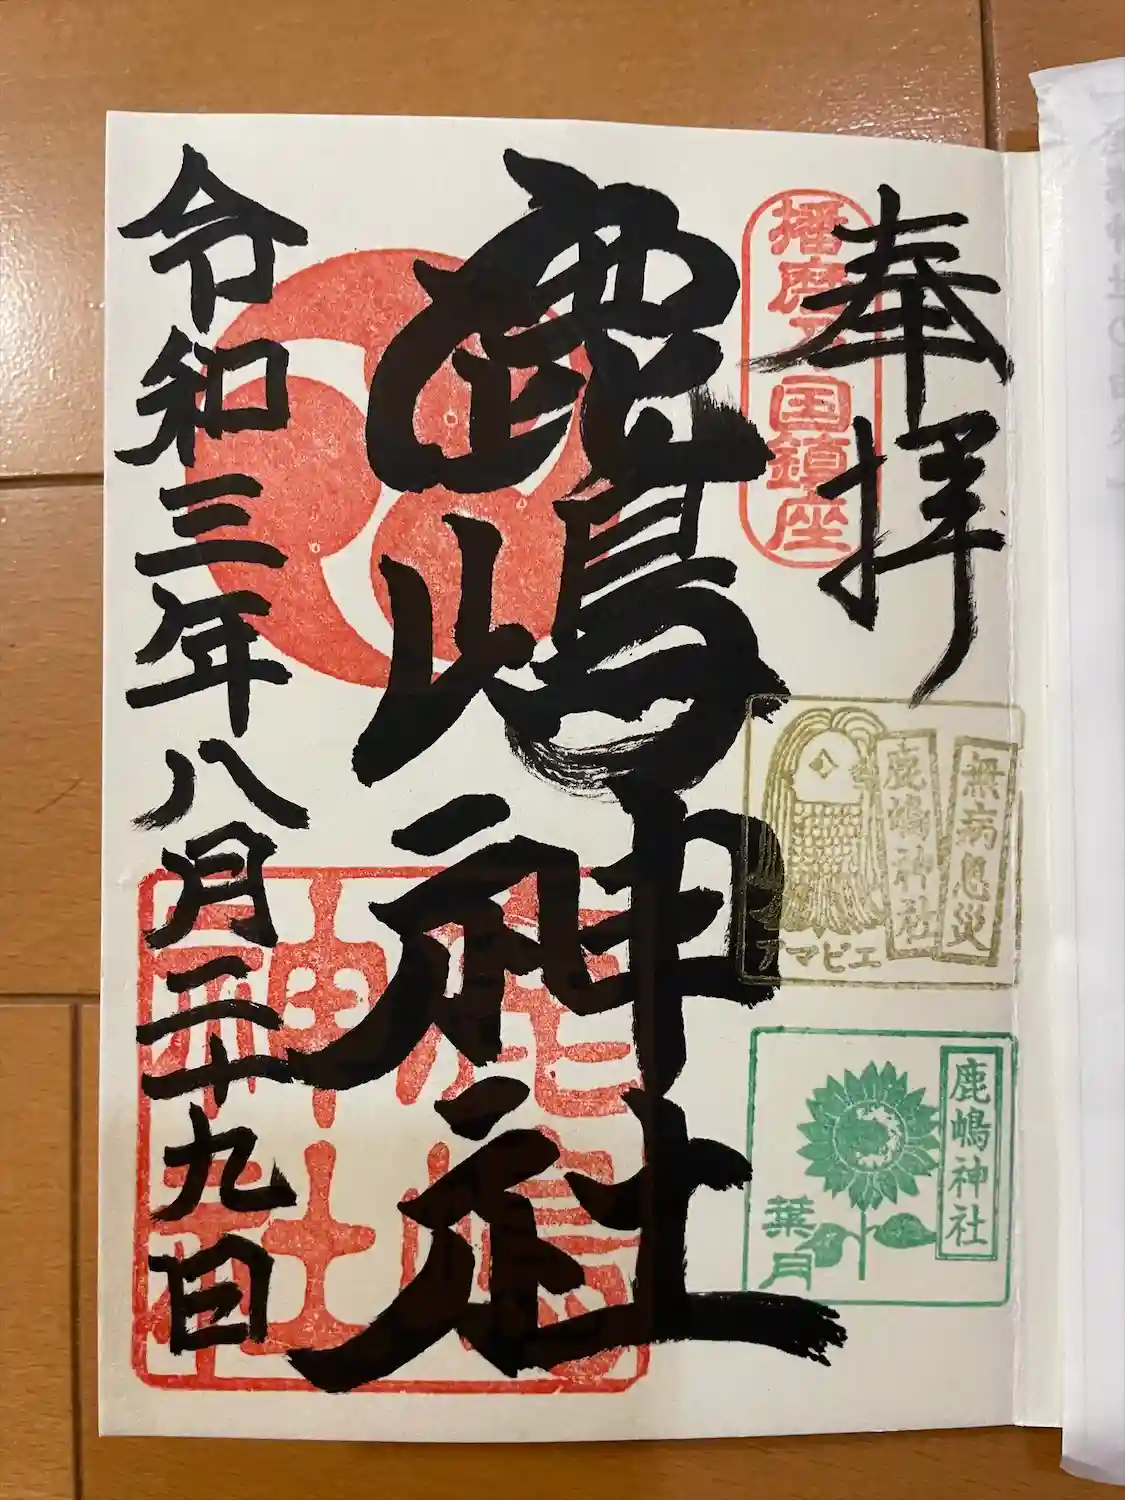 奉拝
播磨之国鎮座
無病息災
鹿嶋神社
アマビエ
鹿嶋神社
葉月
鹿嶋神社
鹿嶋神社
令和三年八月二十九日